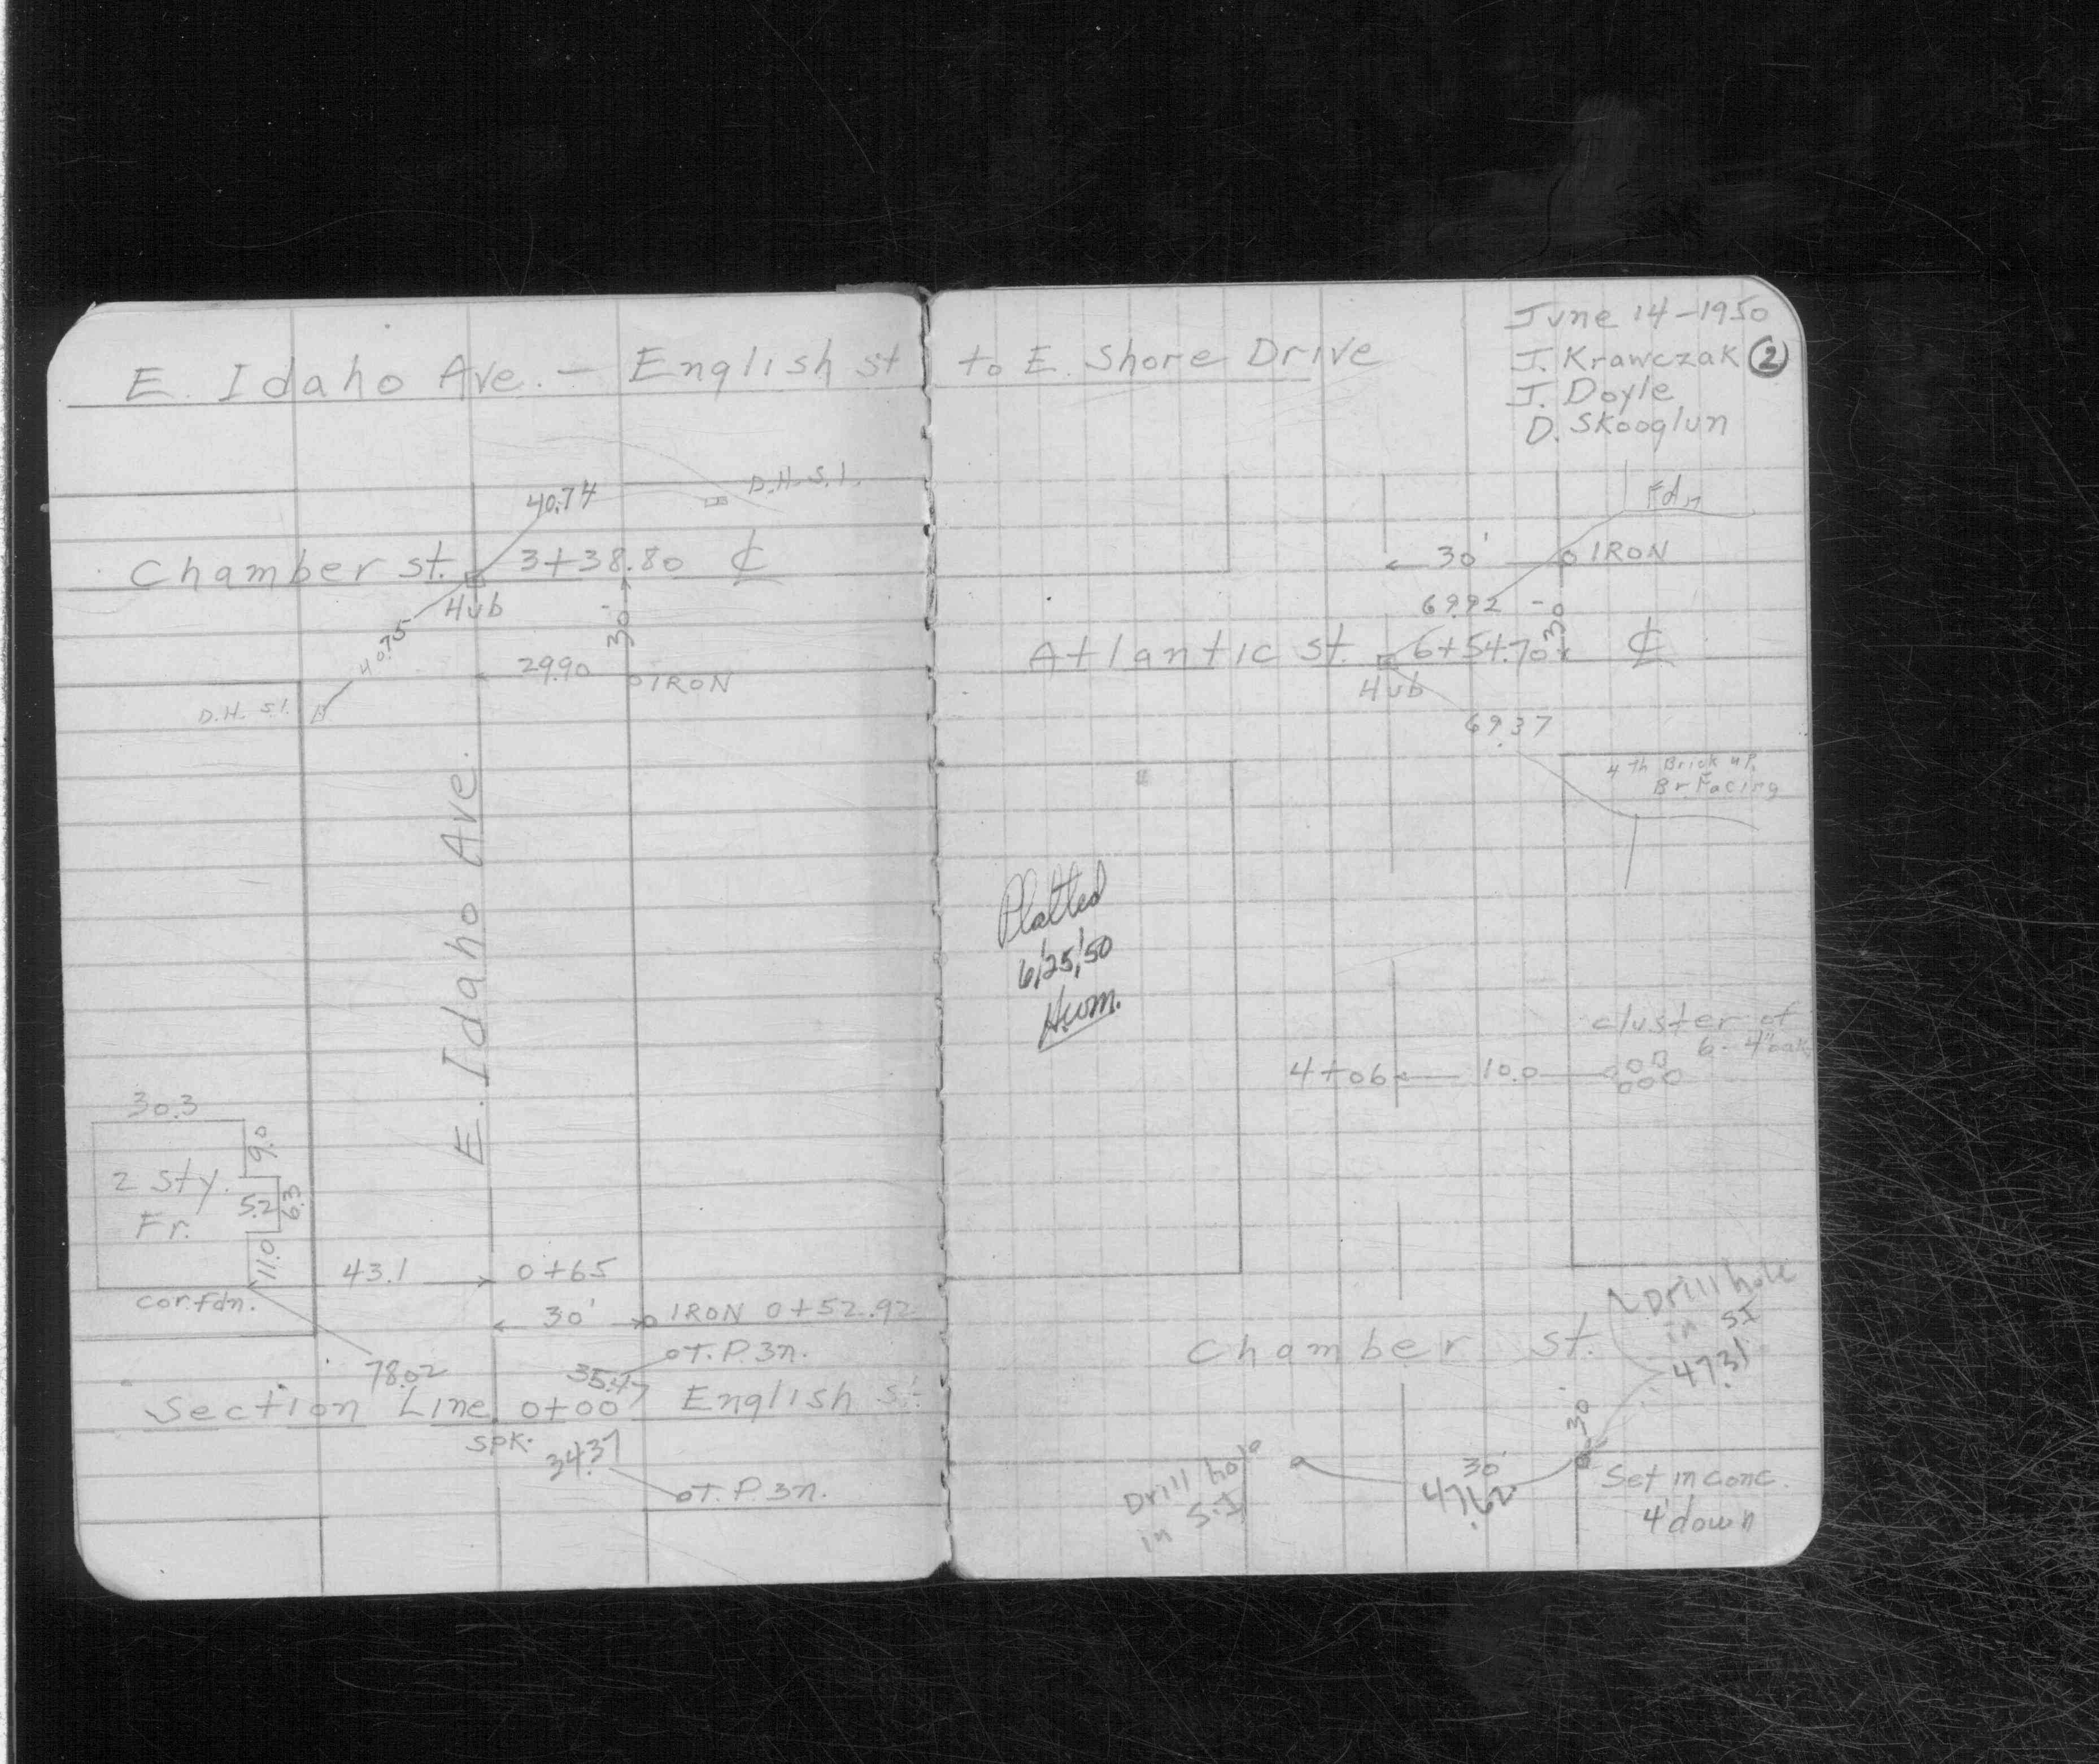 E. Idaho Ave. - English st
40.74
D.H. S.I.
Chamber st. 3+38.80 ℄
Hub
40.75
30
29.90
IRON
D.H. S.I.
E. Idaho Ave.
30.3
9.0
2 Sty.
Fr.
5.2
6.3
11.0
43.1 0+65
cor. fdn.
30' IRON 0+52.92
T.P. 3n.
78.02
35.47
Section Line 0+00 English st.
spk.
34.37
T.P. 3n.
to E. Shore Drive
June 14-1950
J. Krawczak 2
J. Doyle
D. Skooglun
Fdn
30' IRON
69.92
30
Atlantic st. 6+54.70 ℄
Hub
69.37
4th Brick up.
Br. Facing
Platted
6/25/50
H.W.M.
cluster of
6-4" oak
4+06 10.0
Drill hole
in SI
47.31
Chamber st.
30
Drill hole
in S.I
30'
47.62
Set in conc.
4' down